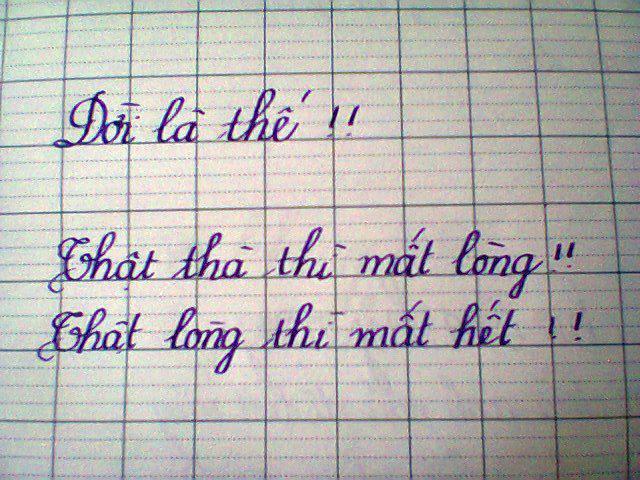 Đời là thế !!
Thật thà thì mất lòng !!
Thật lòng thì mất hết !!